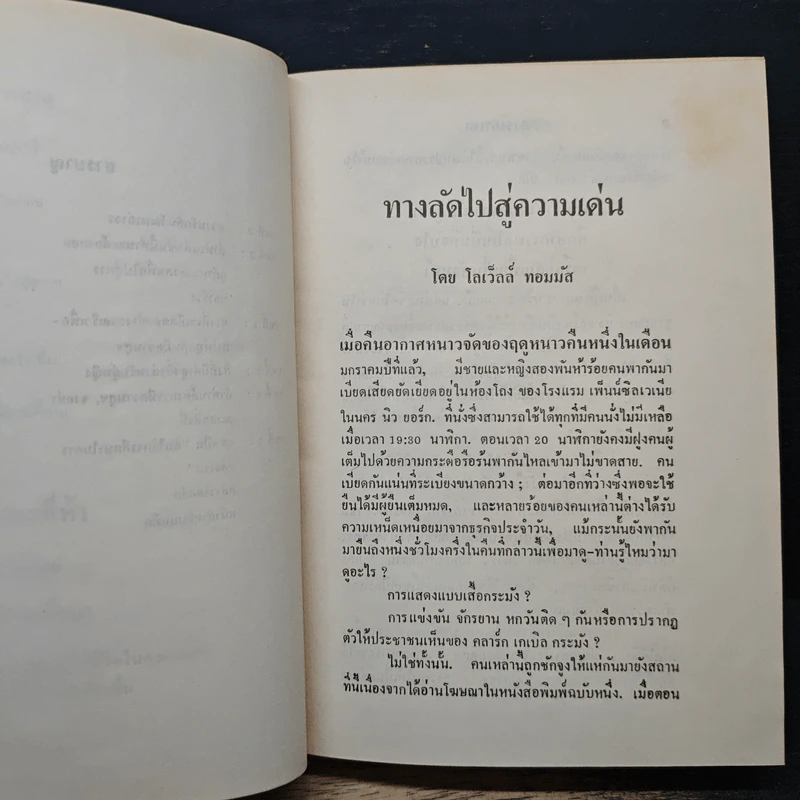 ทางลัดไปสู่ความเด่น
โดย โลเว็ลล์ ทอมมัส
เมื่อคืนอากาศหนาวจัดของฤดูหนาวคืนหนึ่งในเดือน
มกราคมปีที่แล้ว, มีชายและหญิงสองพันห้าร้อยคนพากันมา
เบียดเสียดยัดเยียดอยู่ในห้องโถง ของโรงแรม เพ็นน์ซิลเวเนีย
ในนคร นิว ยอร์ก. ที่นั่งซึ่งสามารถใช้ได้ทุกที่มีคนนั่งไม่มีเหลือ
เมื่อเวลา 19:30 นาฬิกา. ตอนเวลา 20 นาฬิกายังคงมีฝูงคนผู้
เต็มไปด้วยความกระตือรือร้นพากันไหลเข้ามาไม่ขาดสาย. คน
เบียดกันแน่นที่ระเบียงขนาดกว้าง ; ต่อมาอีกที่ว่างซึ่งพอจะใช้
ยืนได้มีผู้ยืนเต็มหมด, และหลายร้อยของคนเหล่านี้ต่างได้รับ
ความเหน็ดเหนื่อยมาจากธุรกิจประจำวัน, แม้กระนั้นยังพากัน
มายืนถึงหนึ่งชั่วโมงครึ่งในคืนที่กล่าวนี้เพื่อมาดู-ท่านรู้ไหมว่ามา
ดูอะไร ?
การแสดงแบบเสื้อกระมัง ?
การแข่งขัน จักรยาน หกวันติด ๆ กันหรือการปรากฏ
ตัวให้ประชาชนเห็นของ คลาร์ก เกเบิล กระมัง ?
ไม่ใช่ทั้งนั้น. คนเหล่านี้ถูกชักจูงให้แห่กันมายังสถาน
ที่นี้เนื่องจากได้อ่านโฆษณาในหนังสือพิมพ์ฉบับหนึ่ง. เมื่อตอน